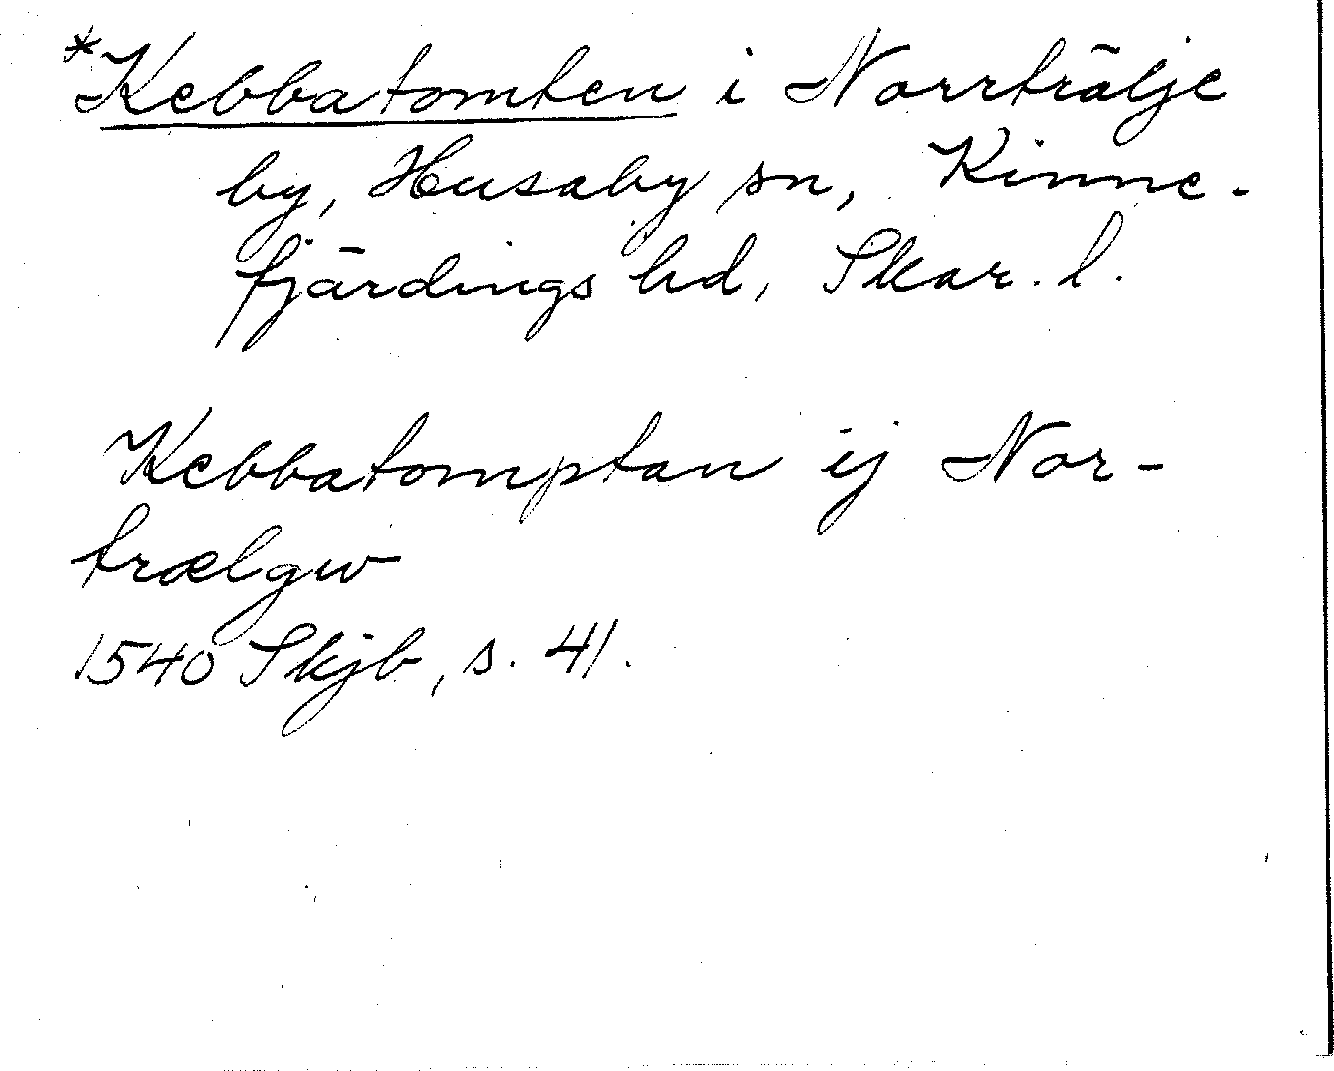 *Kebbatomten i Norrträlje
by, Husaby sn, Kinne-
fjärdings hd, Skar. l.
Kebbatomptan ij Nor-
trælgw
1540 Skjb, s. 41.